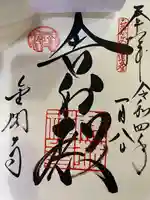 奉拝 令和四年
一月八日
舎利殿
金閣寺